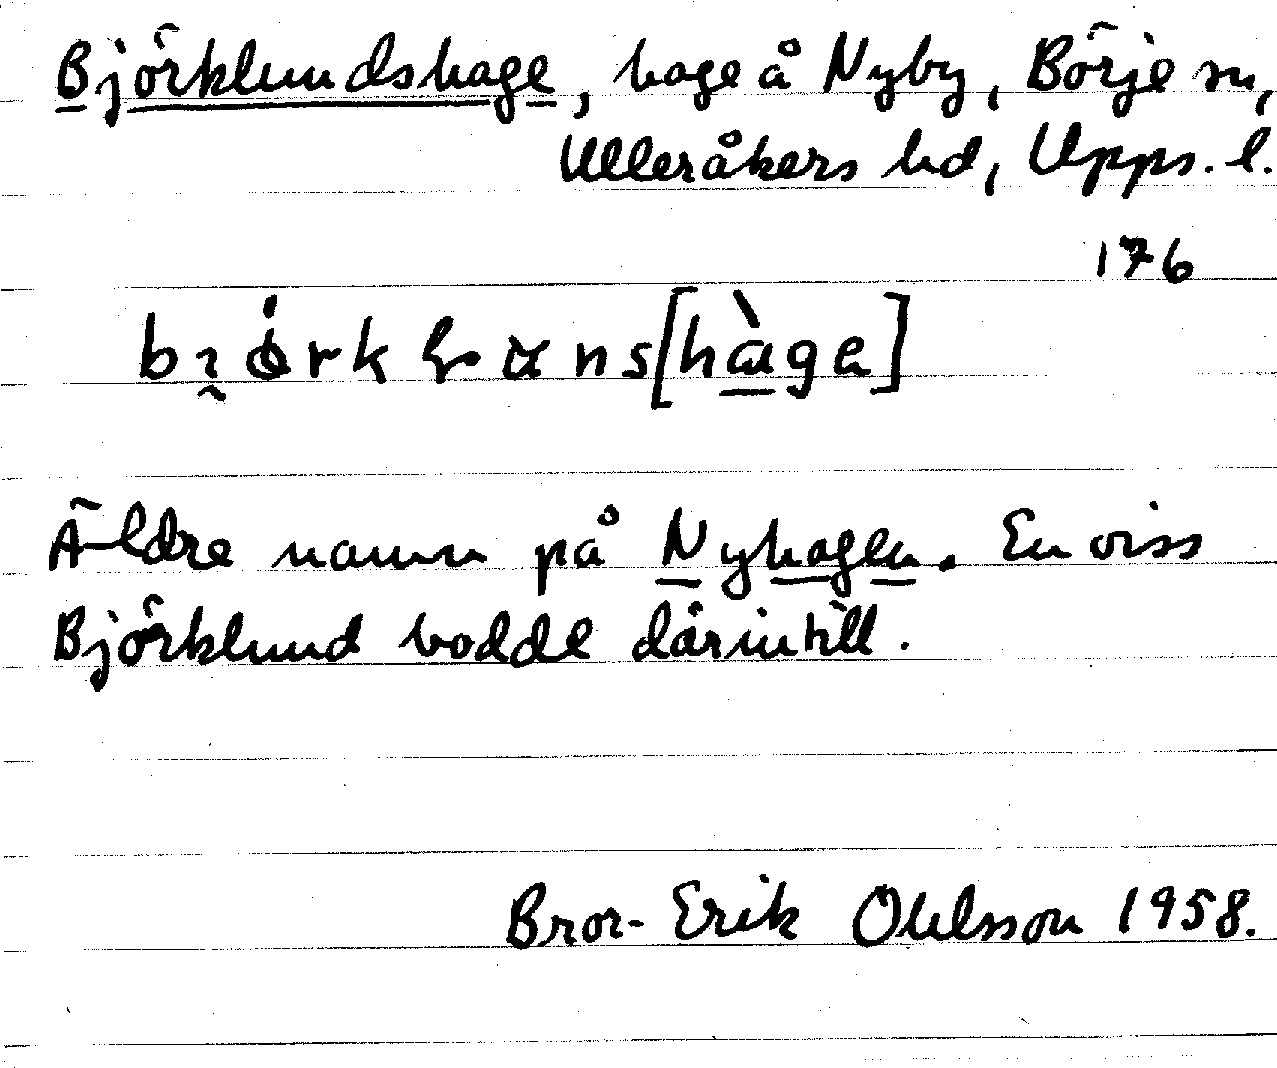 Björklundshage, hage å Nyby, Börje sn,
Ulleråkers hd, Upps. l.
176
Äldre namn på Nyhagen. En viss
Björklund bodde därintill.
Bror-Erik Ohlsson 1958.